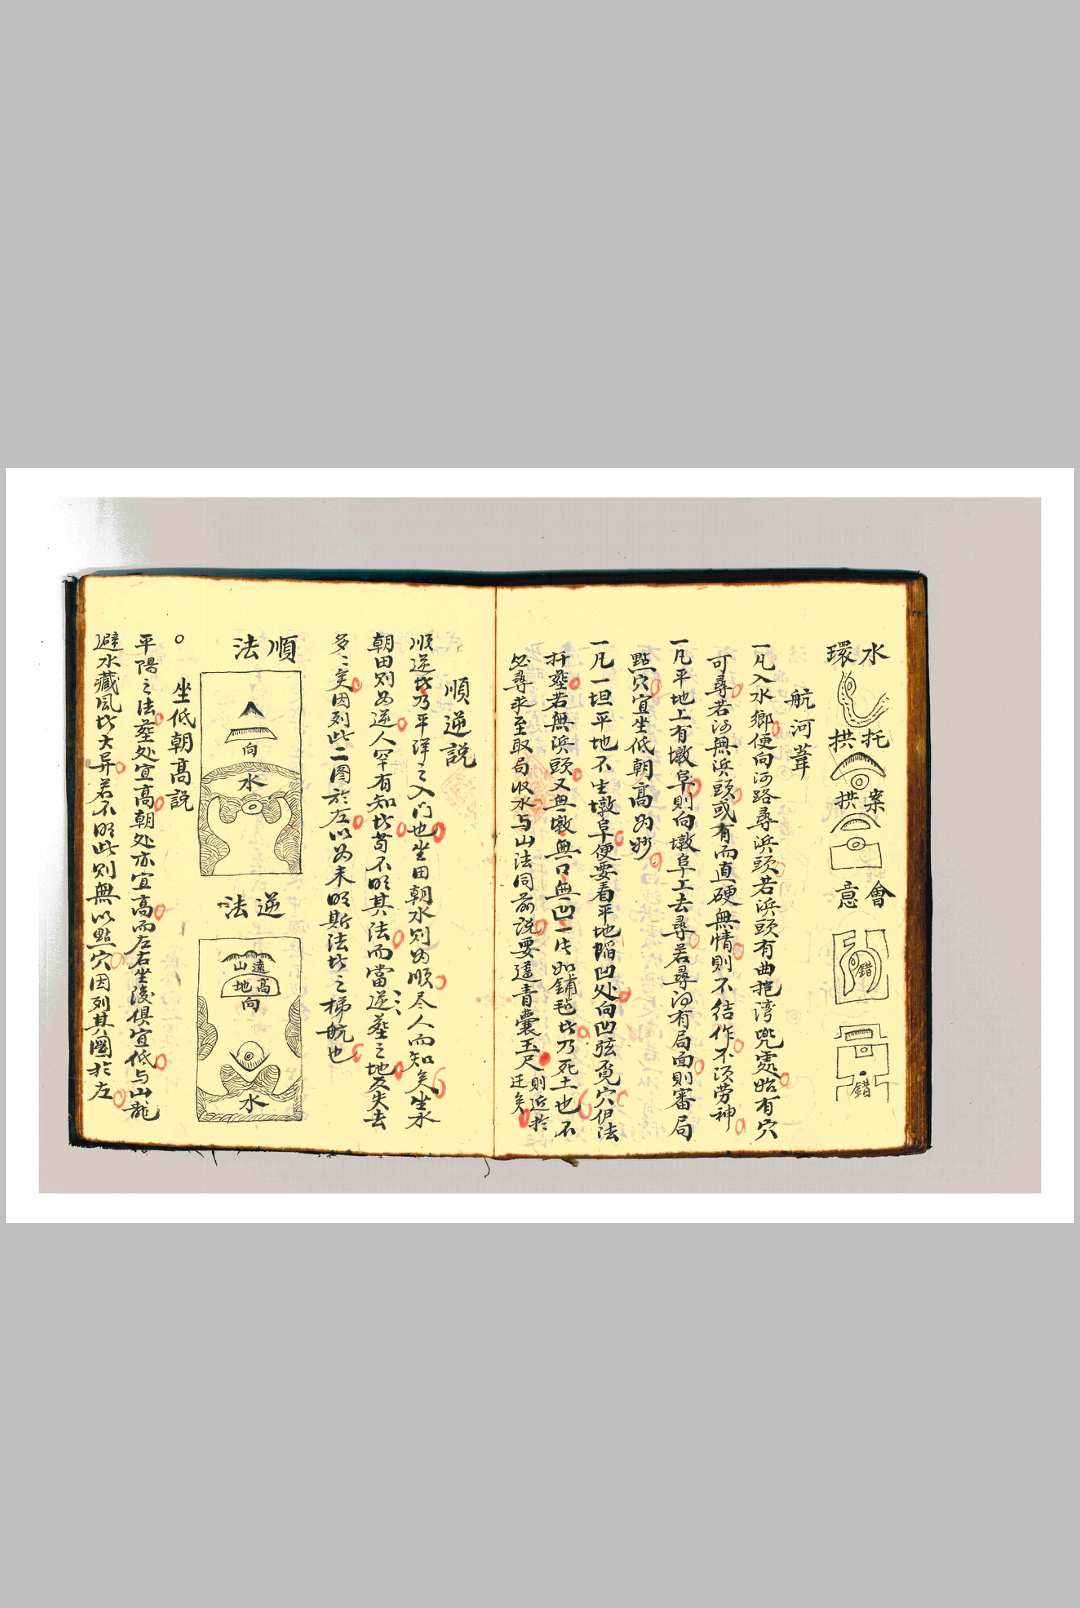 水環
托拱
案拱
會意
錯
錯
航河葦
一凡入水鄉便向河路尋浜頭若浜頭有曲抱灣兜處始有穴
可尋若河無浜頭或有而直硬無情則不結作不須勞神
一凡平地上有墩阜則向墩阜上去尋若尋河有局面則審局
點穴宜坐低朝高為妙
一凡一坦平地不生墩阜便要看平地陷凹处向凹弦覓穴但法
扦塟若無浜頭又無墩無口無凹一片如鋪毡此乃死土也不
必尋求至取局收水与山法同前説要遵青囊玉尺則近於
迂矣
順逆説
順逆者乃平洋之入门也坐田朝水则為順尽人而知矣坐水
朝田则為逆人罕有知者苟不明其法而當逆塟之地反失去
多〻矣因列此二图於左以為未明斯法者之梯航也
順法
向
水
逆法
遠山
高地
向
水
坐低朝高説
平陽之法塟处宜高朝处亦宜高而左右坐後俱宜低与山龍
避水藏風者大异若不明此则無以點穴因列其圖於左